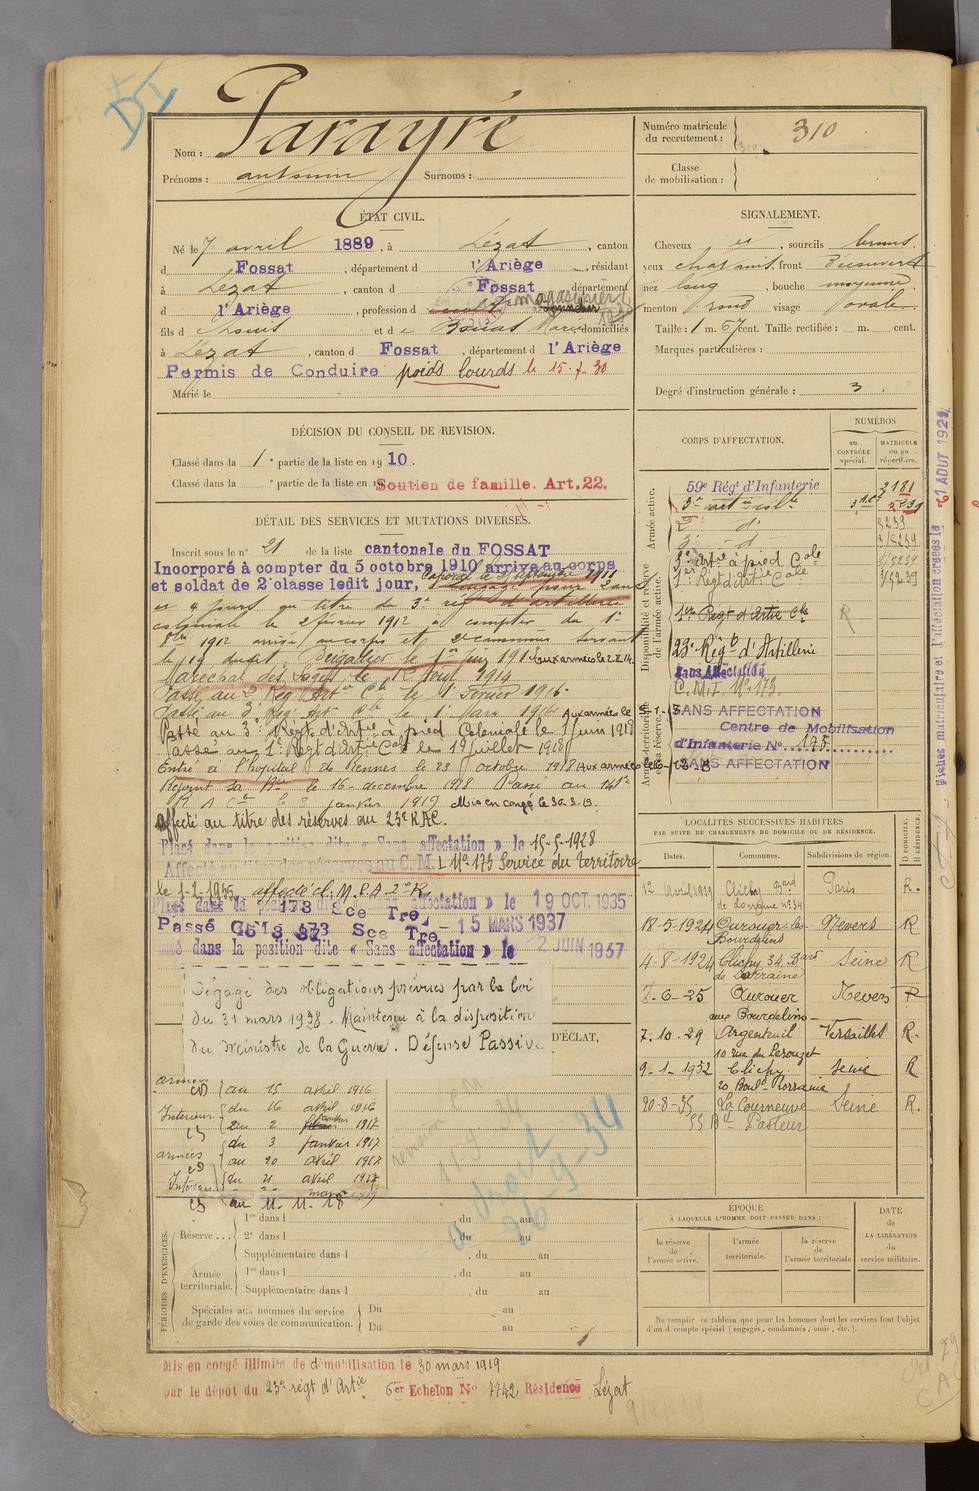 Nom : Parayré
Prénoms : antonin Surnoms :
Numéro matricule du recrutement : 310
Classe de mobilisation :
ÉTAT CIVIL.
Né le 7 avril 1889, à Lézat, canton
d Fossat, département d l'Ariège, résidant
à Lézat, canton d Fossat département
d l'Ariège, profession d magasinier
fils d et d domiciliés
à Lézat, canton d Fossat, département d l'Ariège
Permis de Conduire poids lourds le 15-7-30
Marié le
SIGNALEMENT.
Cheveux , sourcils bruns.
yeux chatains, front Découvert
nez long, bouche moyenne
menton rond visage ovale
Taille : 1 m. 67 cent. Taille rectifiée : m. cent.
Marques particulières :
Degré d'instruction générale : 3.
DÉCISION DU CONSEIL DE REVISION.
Classé dans la 1e partie de la liste en 1910.
Classé dans la e partie de la liste en 19
Soutien de famille. Art. 22.
DÉTAIL DES SERVICES ET MUTATIONS DIVERSES.
Inscrit sous le n° 21 de la liste cantonale du FOSSAT
Incorporé à compter du 5 octobre 1910 arrivé au corps
et soldat de 2e classe ledit jour, caporal le 1911
engagé pour ans
et 4 jours au titre du 3e rég. d'artillerie
coloniale le 2 février 1912 à compter du 1er
8bre 1912 arrivé au corps et 2e canonnier servant
le 19 dudit. Brigadier le 1er Juin 191 aux armées le 2.8.14.
Maréchal des Logis le Aout 1914
Passé au 2e Rég Art Cle le 1 Février 1916.
Passé au 3e Rég. Art Cle le 1 Mars 1916. Aux armées le
Passé au 3e Regt d'Artie à pied Coloniale le 1 Juin 1918
Passé au 1er Regt d'artie Cole le 19 juillet 1918
Entré à l'hôpital de Rennes le 23 octobre 1918
Rejoint sa Bie le 16 decembre 1918 Passé au 141e
R A Cle le 3 janvier 1919 Mis en congé le 30.3.19.
Affecté au titre des réserves au 23e RAC.
Placé dans la position dite « Sans affectation » le 15-5-1928
Affecté au titre des réserves au C. M. I. No 173 Service du Territoire
le 1-2-1935 affecté
Placé dans la position dite « Sans affectation » le 19 OCT. 1935
173 Sce Tre
Passé CMI 173 Sce Tre - 15 MARS 1937
Placé dans la position dite « Sans affectation » le 2 JUIN 1937
Dégagé des obligations prévues par la loi
du 31 mars 1928. Maintenu à la disposition
du Ministre de la Guerre. Défense Passive
D'ÉCLAT,
armées
CD au 15 avril 1916
Intérieur du 16 avril 1916
CS au 2 janvier 1917
armées du 3 janvier 1917
CD au 20 avril 1917
Intérieur du 21 avril 1917
CS au 11-11-18
à droit
26-9-34
CORPS D'AFFECTATION.
NUMÉROS
au CONTRÔLE spécial.
MATRICULE ou au répertoire.
Armée active.
59e Régt d'Infanterie 3181
3e artie colle 5239
2e - d° 5239
3e - d - 3/5239
Disponibilité et réserve de l'armée active.
3e artie à pied Cole 3/5239
1er Regt d'artie Cole 1/5239
1er Regt d'artie Cle R
23e Régt d'Artillerie
Sans Affectation
C. M. I. No 173.
Armée territoriale et sa réserve.
SANS AFFECTATION
Centre de Mobilisation
d'Infanterie No 175
SANS AFFECTATION
LOCALITÉS SUCCESSIVES HABITÉES
PAR SUITE DE CHANGEMENTS DE DOMICILE OU DE RÉSIDENCE.
Dates. Communes. Subdivisions de région. D DOMICILE. R RÉSIDENCE.
12 avril 1919 Clichy Bard de Lorraine n° 34 Paris R.
18-5-1924 Ourouer-les-Bourdelins Nevers R
4-8-1924 Clichy, 34, Bard de Lorraine Seine R
8-6-25 Ourouer aux Bourdelins Nevers R
7.10.29 Argenteuil Versailles R.
9-1-1932 Clichy 20 Boul. Lorraine Seine R
20-8-35 La Courneuve Seine R.
55 Rue Pasteur
PÉRIODES D'EXERCICES.
Réserve ... 1re dans l , du au
2e dans l , du au
Supplémentaire dans l , du au
Armée territoriale. 1re dans l , du au
Supplémentaire dans l , du au
Spéciales aux hommes du service de garde des voies de communication. Du au
Du au
ÉPOQUE
À LAQUELLE L'HOMME DOIT PASSER DANS :
la réserve de l'armée active. l'armée territoriale. la réserve de l'armée territoriale
DATE DE LA LIBÉRATION du service militaire.
Ne remplir ce tableau que pour les hommes dont les services font l'objet
d'un décompte spécial (engagés, condamnés, omis, etc.).
Mis en congé illimité de démobilisation le 30 mars 1919
par le dépôt du 23e régt d'Artie 6er Echelon No 7742 Résidence Lézat